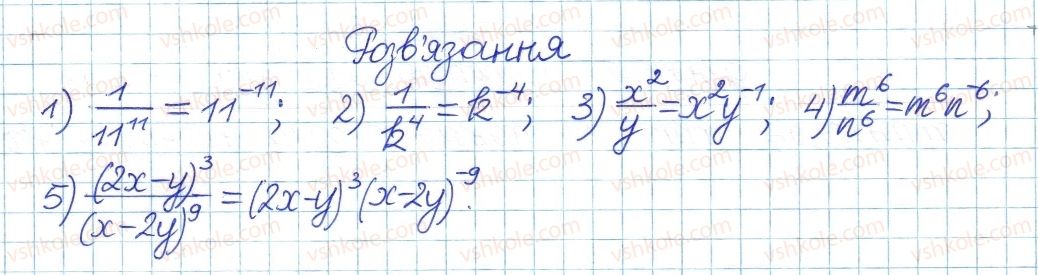 Розв'язання
1) \frac{1}{11^{11}} = 11^{-11}; 2) \frac{1}{k^4} = k^{-4}; 3) \frac{x^2}{y} = x^2y^{-1}; 4) \frac{m^6}{n^6} = m^6n^{-6};
5) \frac{(2x-y)^3}{(x-2y)^9} = (2x-y)^3(x-2y)^{-9}.
vshkole.com